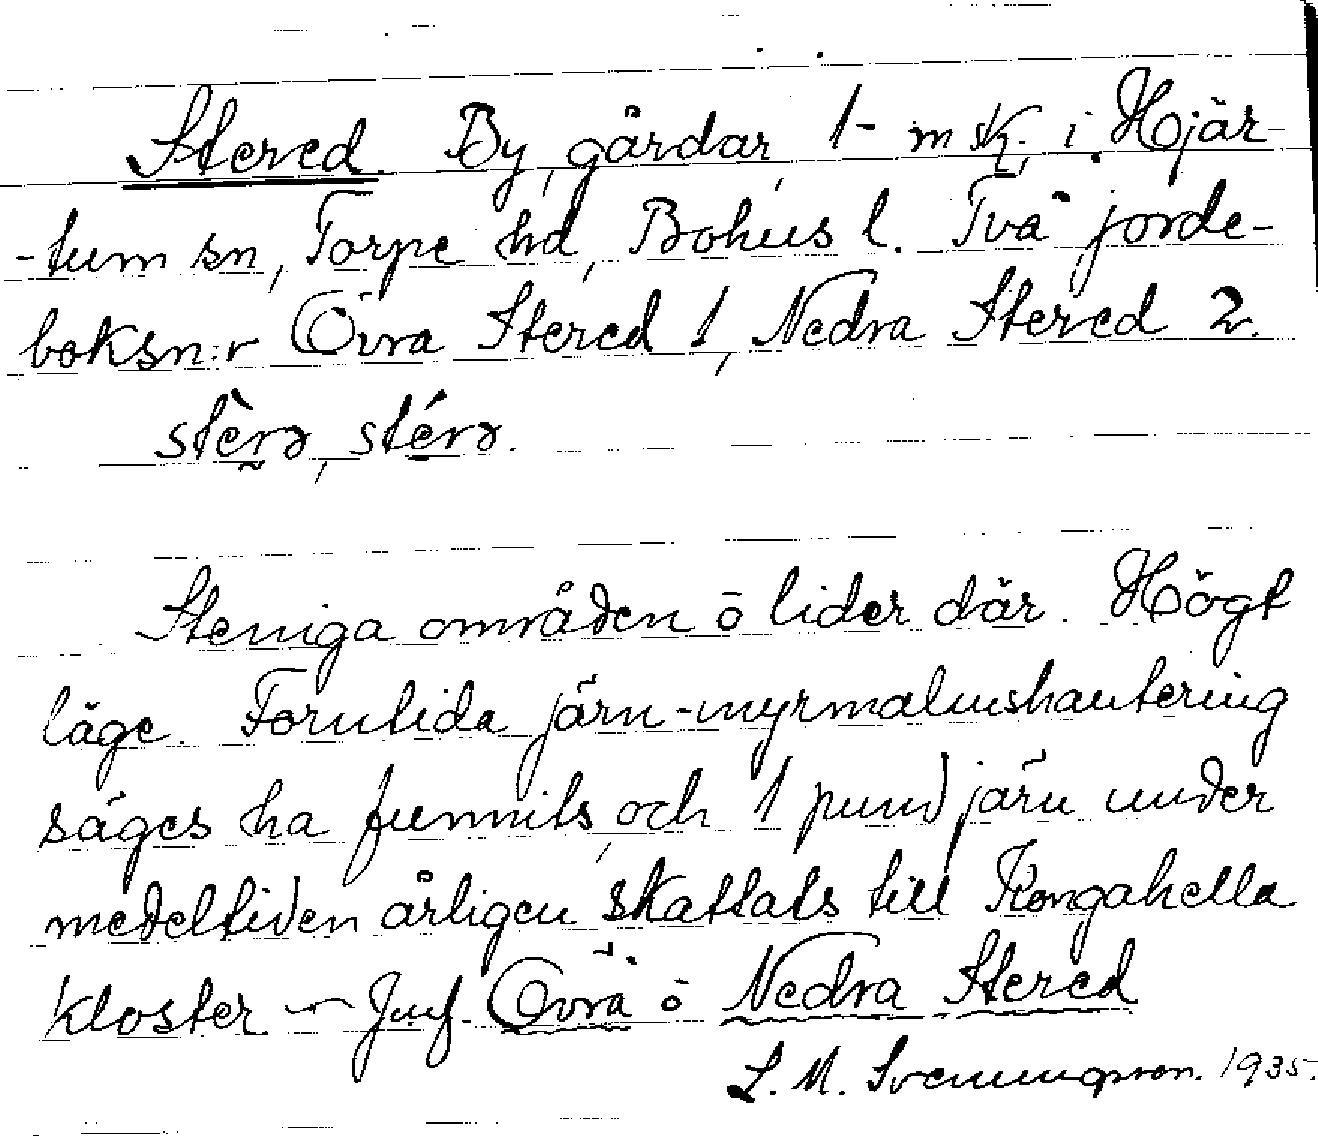 Stered. By, gårdar, 1 m sk. i Hjär-
-tum sn, Torpe hd, Bohus l. Två jorde-
boksn:r Övra Stered 1, Nedra Stered 2.
stèrə, stérə.
Steniga områden ō lider där. Högt
läge. Forntida järn-myrmalmshantering
säges ha funnits, och 1 pund järn under
medeltiden årligen skattats till Kongahella
kloster. — Jmf. Övra ō Nedra Stered
L. M. Svenungsson. 1935.